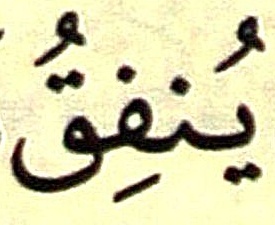 يُنفِقُ